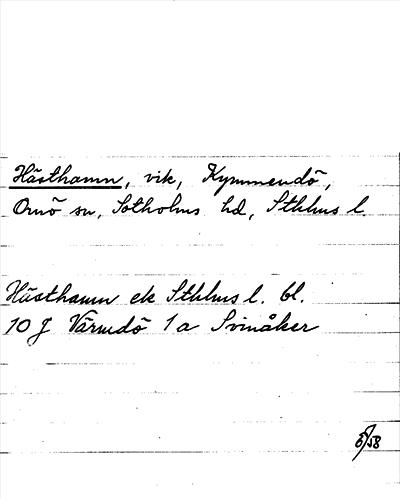 Hästhamn, vik, Kymmendö,
Ornö sn, Sotholms hd, Sthlms l.
Hästhamn ek Sthlms l. bl.
10 J Värmdö 1a Svinåker
/58